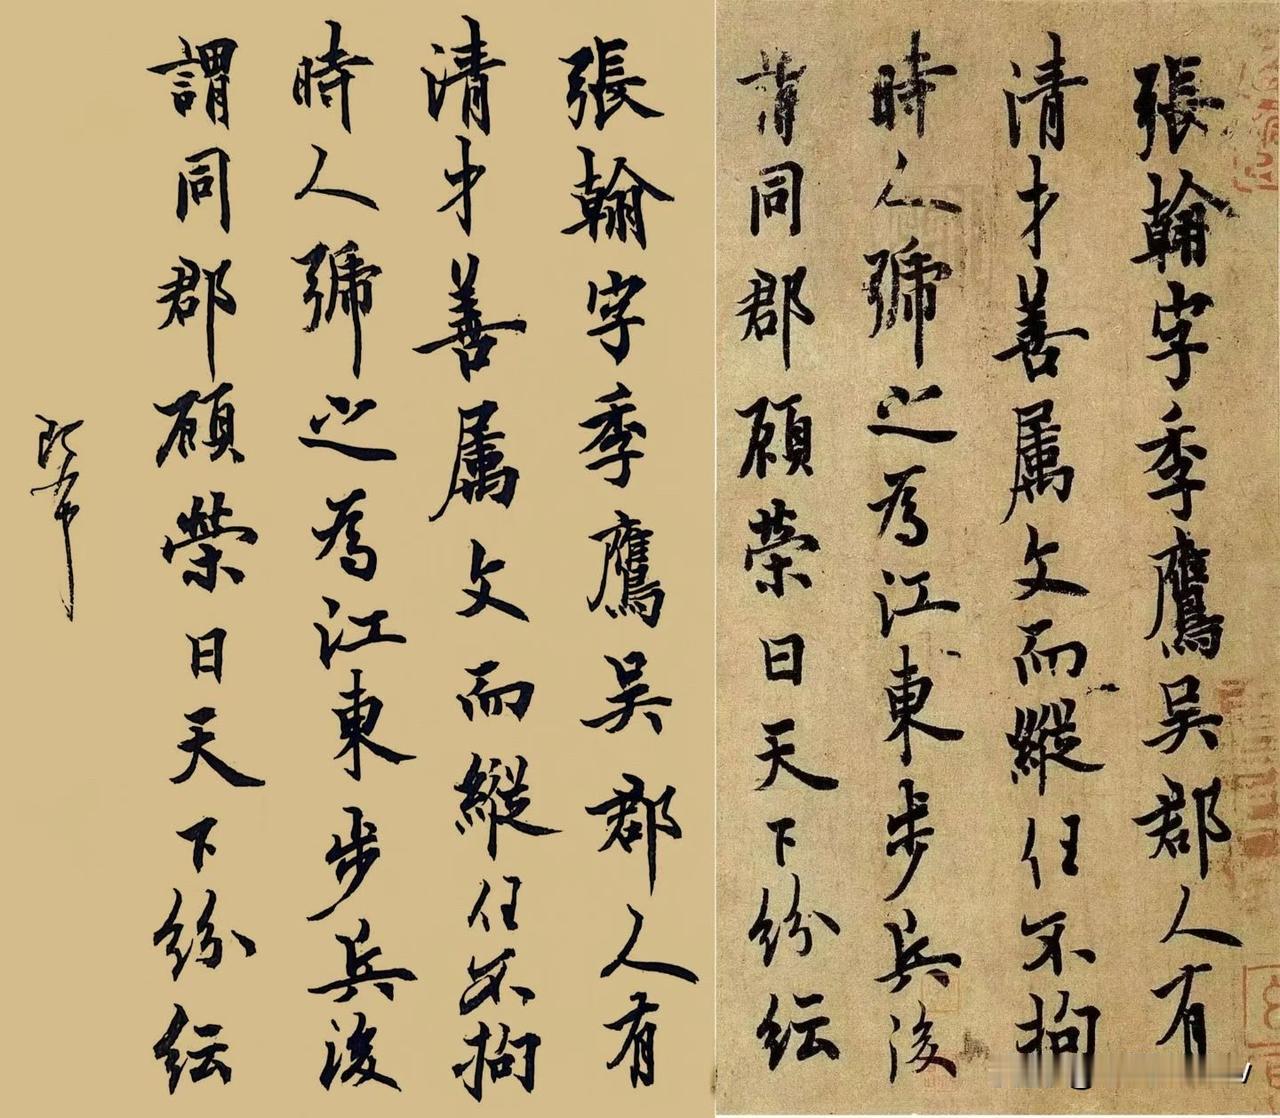 張翰字季鷹吳郡人有
清才善属文而縱任不拘
時人號之為江東步兵後
謂同郡顧榮曰天下紛紜
張翰字季鷹吳郡人有
清才善属文而縱任不拘
時人號之為江東步兵後
同郡顧榮曰天下紛紜